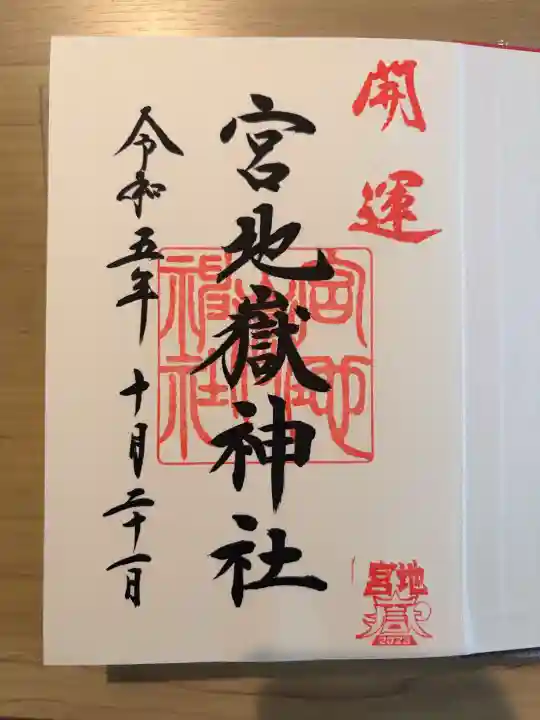 開運
宮地嶽神社
令和五年十月二十一日
宮地
嶽
神社
宮地
嶽
2023